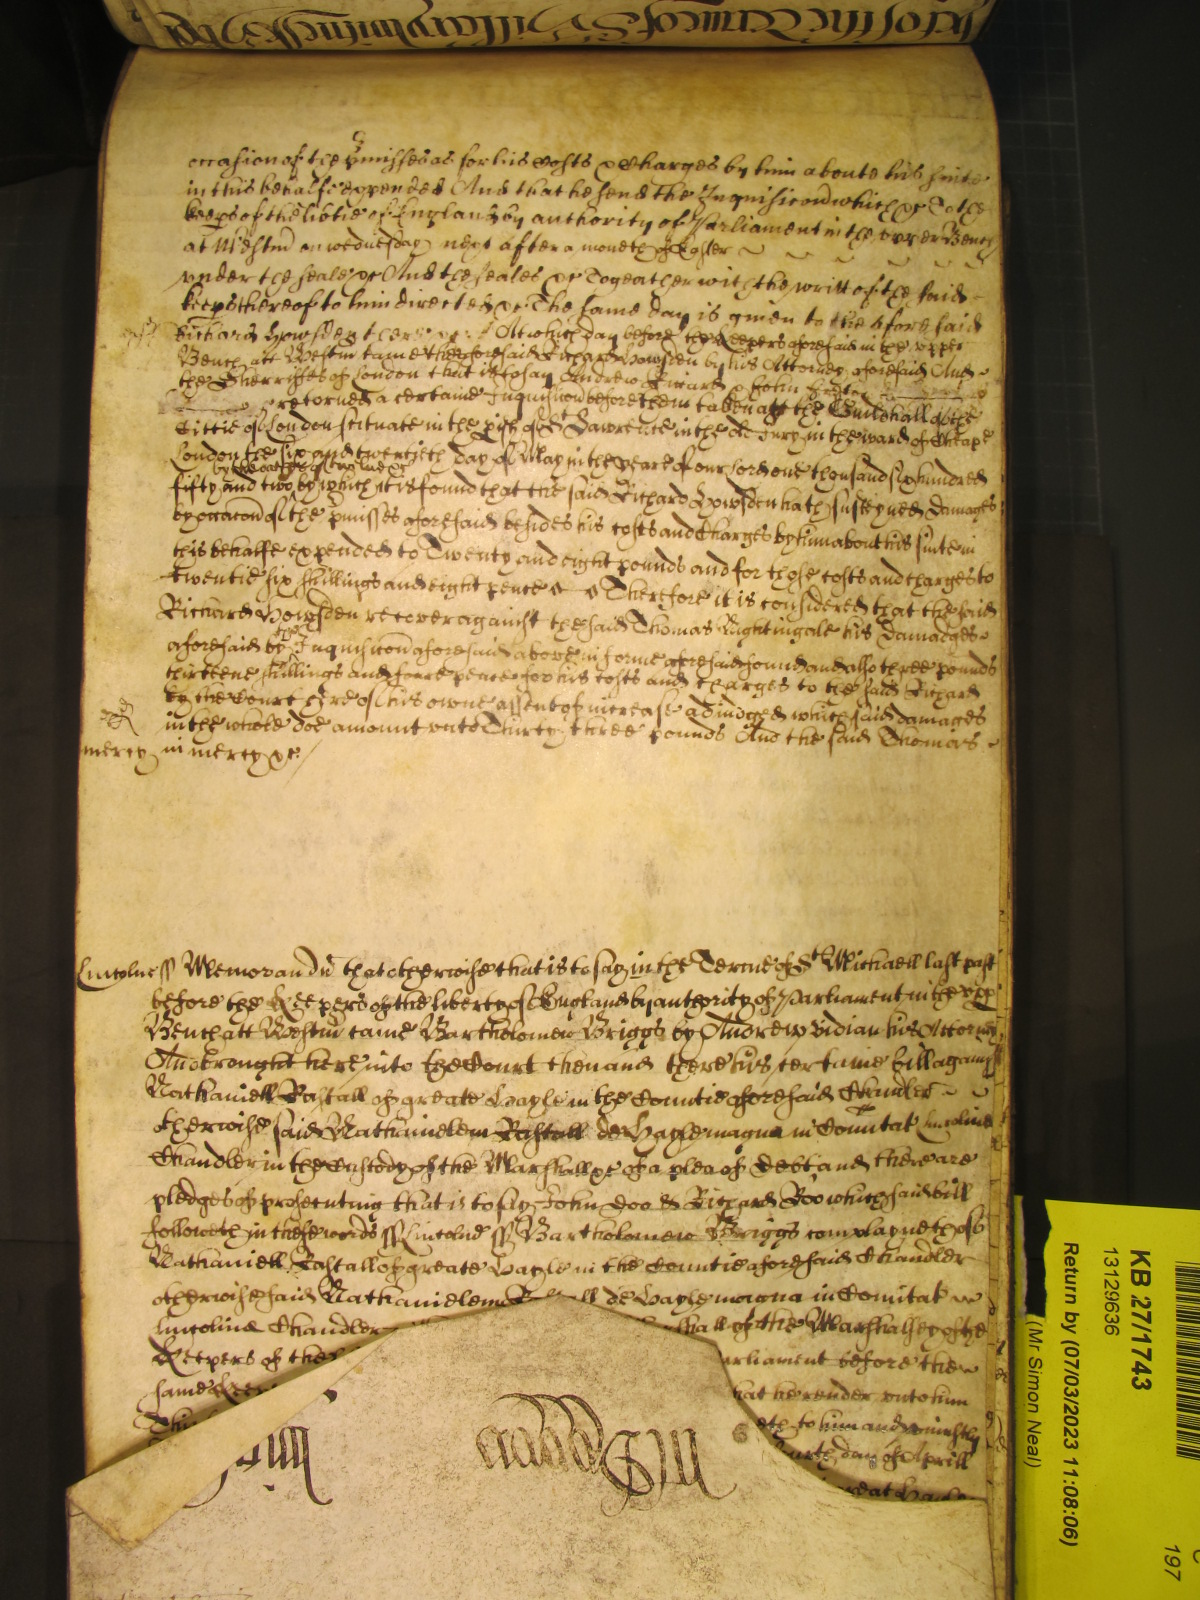 occasion of the p'misses as for his costs & charges by him aboute his suite
in this behalfe expended And that he send the Inquisicon which &c To the
keeps of the lib'tie of England by authority of Parliament in the upper Bench
at Westm' on wednesday next after a moneth of Easter
under the seale &c And the seales &c Togeather with the writt of the said
keeps thereof to him directed &c The same day is given to the aforesaid
Richard Howsden there &c At which day before the Keepers aforesaid in the upper
Bench att Westm' came the aforesaid Richard Howsden by his Attorney aforesaid And
the Sherriffes of London that is to say Andrew & John
returned a certaine Inquisicon before them taken att the Guildhall of the
Cittie of London scituate in the p'ish of St Lawrence in the old Jury in the ward of Cheape
London the six and twentieth day of May in the yeare of our Lord one thousand six hundred
by the oathes of twelve &c
fifty and two by which it is found that the said Richard Howsden hath susteyned damages
by occacon of the p'misses aforesaid besides his costs and Charges by him about his suite in
this behalfe expended to Twenty and eight pounds and for those costs and charges to
twentie six shillings and eight pence Therefore it is considered that the said
Richard Howsden recover against the said Thomas Nightingale his damadges
aforesaid by Inquisicon aforesaid above in forme aforesaid found and allso three pounds
thirteene shillings and foure pence for his costs and charges to the said Richard
by the Court here of his owne assent of increase adiudged which said damages
in the whole doe amount unto Thirty three pounds And the said Thomas
mercy in mercy &c
Lincolne ss Memorand' that otherwise that is to say in the Terme of St Michaell last past
before the Keepers of the liberty of England by authority of Parliament in the upp'
Bench att Westm' came Bartholomew Briggs by Andrew Vidian his Attorney
And brought here into the Court then and there his certaine bill against
Nathaniell Rastall of greate Hayle in the Countie aforesaid Chandler
otherwise said Nathanielem Rastall de Hayle magna in Comitat Lincolne
Chandler in the Custody of the Marshall &c of a plea of Debt and there are
pledges of prosecuting that is to say John Doo & Richard Roo which said bill
followeth in these words ss Lincolne ss Bartholomew Briggs complayneth of
Nathaniell Rastall of greate Hayle in the Countie aforesaid Chandler
otherwise said Nathanielem de Hayle magna in Comitat
Lincolne Chandler of the Marshalsey of the
Keepers of the before the
same that he render unto him
to him and uniustly
day of Aprill
KB 27/1743
13129636
Return by (07/03/2023 11:08:06)
(Mr Simon Neal)
197